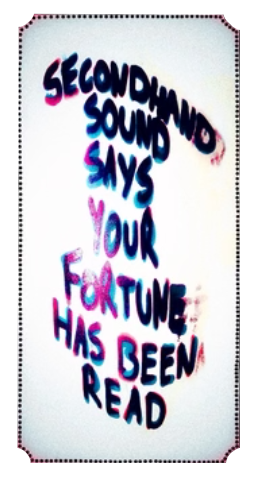 SECONDHAND
SOUND
SAYS
YOUR
FORTUNE
HAS BEEN
READ